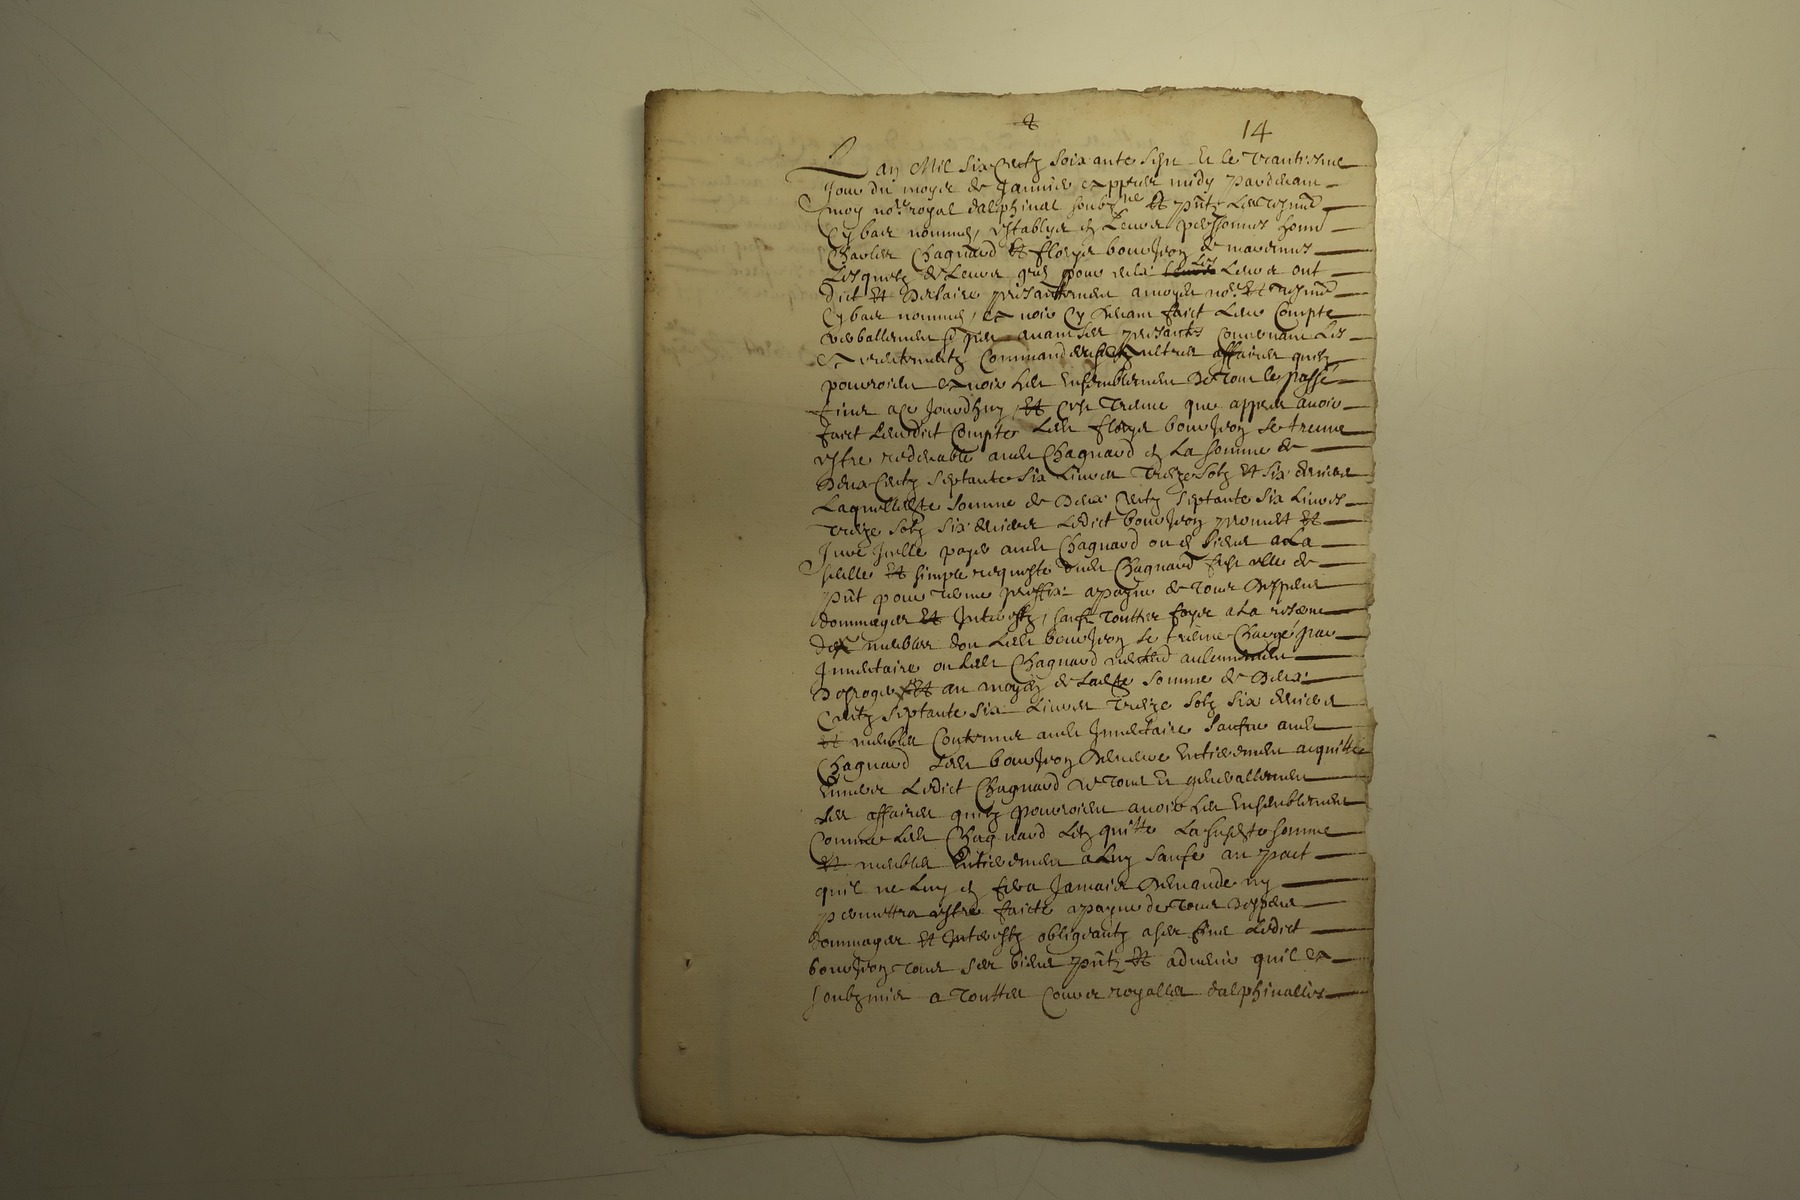 14
Lan Mil six centz soixante sept et le trantiesme
Jour du moys de Janvier appres midy pardevant
moy no.re royal dalphinal soubz.ne et pntz les tesmo
cy bas nommes, establys en leurs perssonnes honn
Charles Chagnard et Floris bourjon de
Lesquelz de leurs gres pour eulx et les leurs ont
dict et declaire presantement a moyd no.re et tesmo
cy bas nommes, avoir cy devant faict leur compte
verballement avant ses presantes concernant les
aultres affaires quilz
pouvoient avoir heu ensemblement de tout le passe
jusques a ce jourdhuy, et cest treuve que appres avoir
faict leurdict compte led Floris bourjon se treuve
estre redevable aud Chagnard en la somme de
deux centz septante six livres treize solz et six deniers
Laquelle dte somme de deux centz septante six livres
treize solz six deniers ledict bourjon promet et
Jure icelle payer aud Chagnard ou es siens a la
seulle et simple requeste dud Chagnard
pnt pour terme preffix a payne de tous despens
dommages et interestz, sauf touttes foys a la reserve
des meubles dont led bourjon se treuve charge par
Inventaire ou led Chagnard nentend aulcunement
desroger, et au moyen de ladte somme de deux
centz septante six livres treize solz six deniers
et meubles contenus aud Inventaire aud
Chagnard led bourjon demeure entierement acquitte
envers ledict Chagnard de tout et generallement
les affaires quilz pouvoient avoir heu ensemblement
comme led Chagnard len quitte la susdte somme
et meubles entierement a luy saufs au pact
quil ne luy en fera jamais demande ny
permettra estre faicte a payne de tous despens
dommages et interestz obligeantz a ses fins ledict
bourjon tous ses biens pntz et advenir quil a
soubzmis a touttes cours royalles dalphinalles